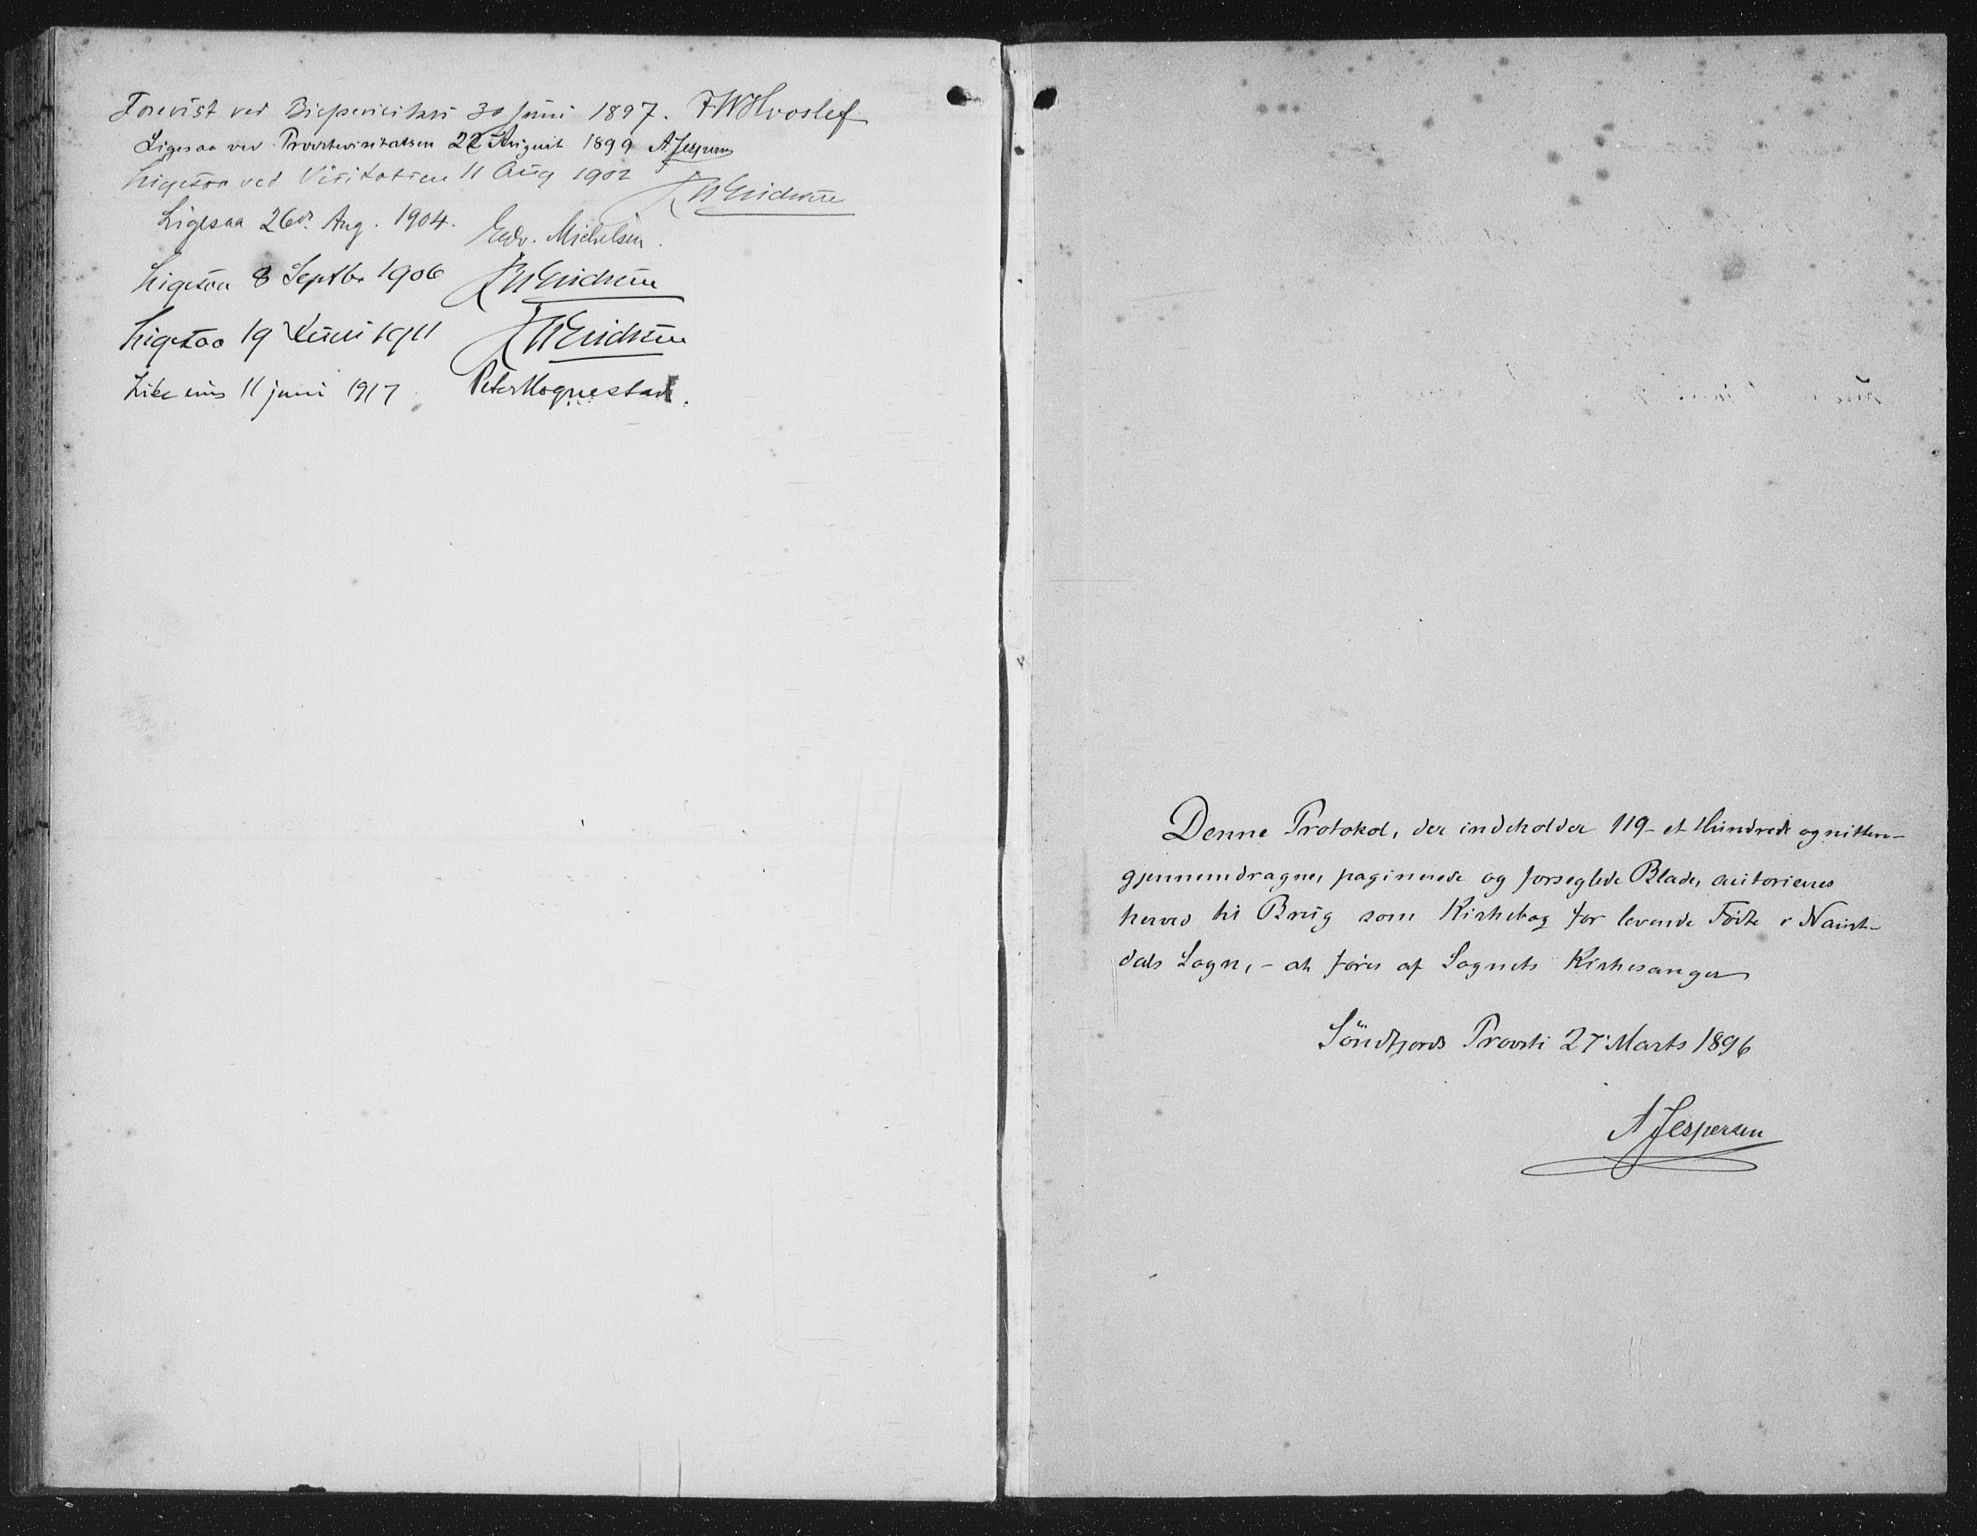 Forevist ved Bispevisitas 30 Juni 1897. F W Hvoslef
Ligesaa ved Provstevisitatsen 22 August 1899 A Jespersen
Ligesaa ved Visitatsen 11 Aug 1902
Ligesaa 26de Aug. 1904. Edv. Michelsen.
Ligesaa 8 Septbr 1906
Ligesaa 19 Juni 1911
Like eins 11 juni 1917 Peter Hognestad.
Denne Protokol, der indeholder 119 - et Hundrede og nitten -
gjennemdragne, paginerede og forseglede Blade, autoriseres
herved til Brug som Kirkebog for levende Fødte i Naust-
dals Sogn, - at føres af Sognets Kirkesanger
Söndfjords Provsti 27 Marts 1896
A Jespersen